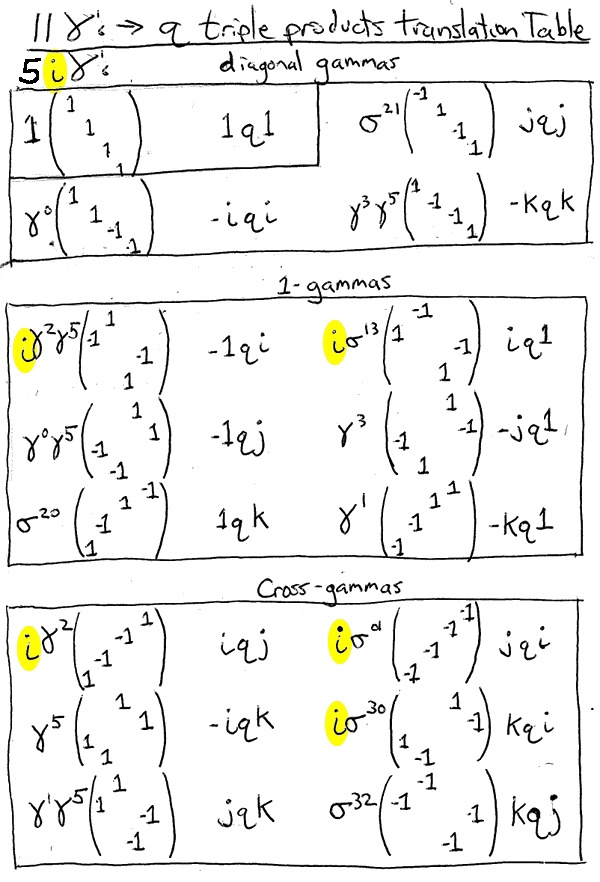 11 γ's → q triple products translation Table
5 i γ's diagonal gammas
1 (1 1 1 1) 1q1 σ²¹ (-1 1 -1 1) jqj
γ⁰ (1 1 -1 -1) -iqi γ³γ⁵ (1 -1 -1 1) -kqk
1-gammas
iγ²γ⁵ (1 -1 -1 1) -1qi iσ¹³ (-1 1 -1 1) iq1
γ⁰γ⁵ (1 1 -1 -1) -1qj γ³ (1 -1 -1 1) -jq1
σ²⁰ (-1 1 -1 1) 1qk γ¹ (1 1 -1 -1) -kq1
Cross-gammas
iγ² (1 -1 -1 1) iqj iσ (-1 -1 -1 -1) jqi
γ⁵ (1 1 1 1) -iqk iσ³⁰ (1 -1 1 -1) kqi
γ¹γ⁵ (1 1 -1 -1) jqk σ³² (-1 -1 -1 -1) kqj